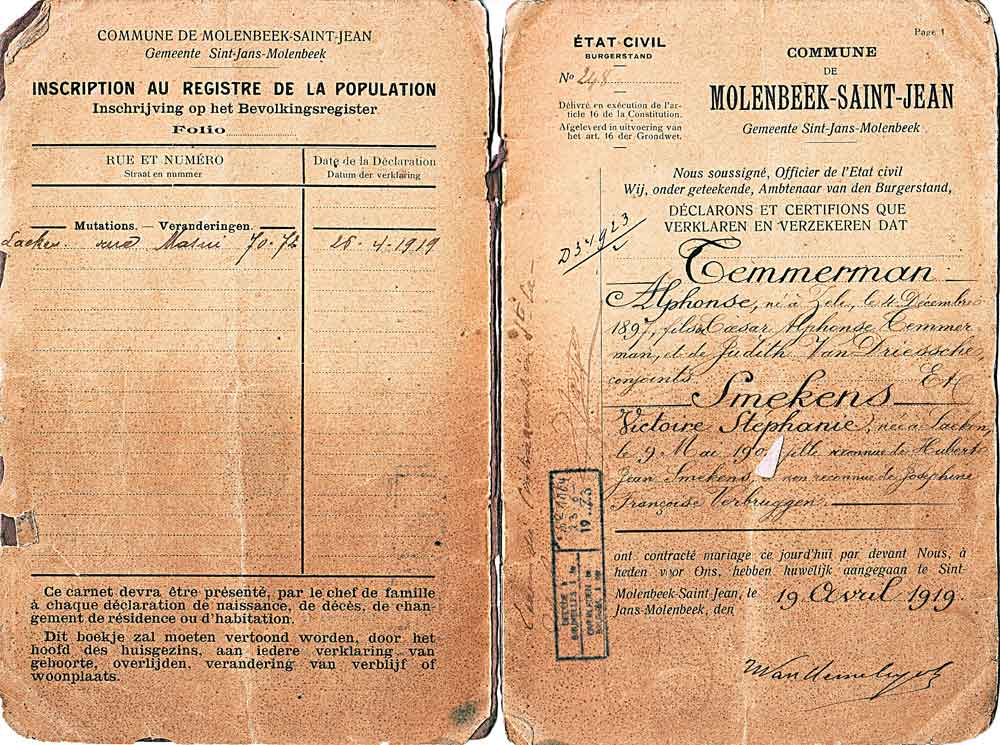 COMMUNE DE MOLENBEEK-SAINT-JEAN
Gemeente Sint-Jans-Molenbeek
INSCRIPTION AU REGISTRE DE LA POPULATION
Inschrijving op het Bevolkingsregister
Folio
RUE ET NUMÉRO
Straat en nummer
Date de la Déclaration
Datum der verklaring
Mutations. — Veranderingen.
Laeken rue Masui 70-72 25-4-1919
Ce carnet devra être présenté, par le chef de famille
à chaque déclaration de naissance, de décès, de chan-
gement de résidence ou d'habitation.
Dit boekje zal moeten vertoond worden, door het
hoofd des huisgezins, aan iedere verklaring van
geboorte, overlijden, verandering van verblijf of
woonplaats.
Page 1
ÉTAT CIVIL
BURGERSTAND
No 248
Délivré en exécution de l'ar-
ticle 16 de la Constitution.
Afgeleverd in uitvoering van
het art. 16 der Grondwet.
COMMUNE
DE
MOLENBEEK-SAINT-JEAN
Gemeente Sint-Jans-Molenbeek
Nous soussigné, Officier de l'Etat civil
Wij, onder geteekende, Ambtenaar van den Burgerstand,
DÉCLARONS ET CERTIFIONS QUE
VERKLAREN EN VERZEKEREN DAT
Temmerman
Alphonse, né à Zele, le 4 Décembre
1897, fils de Cæsar Alphonse Temmer-
man, et de Judith Van Driessche,
conjoints. Et
Smekens
Victoire Stephanie, née à Laeken,
le 9 Mai 190 fille reconnue de Hubert
Jean Smekens, et non reconnue de Josephine
Françoise Verbruggen.
ont contracté mariage ce jourd'hui par devant Nous, à
heden voor Ons, hebben huwelijk aangegaan te Sint-
Molenbeek-Saint-Jean, le
Jans-Molenbeek, den
19 Avril 1919.